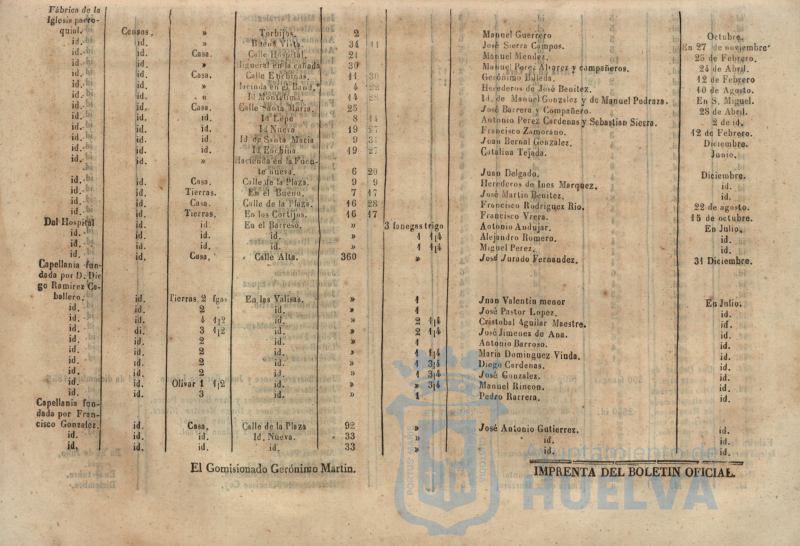 Fábrica de la
Iglesia parro-
quial. Censos. » Torbijos. 2 Manuel Guerrero Octubre.
id. id. » Buena Vista. 34 11 José Sierra Campos. En 27 de noviembre
id. id. Casa. Calle Hospital. 21 Manuel Mendez. 25 de Febrero.
id. id. » Higueral en la cañada 30 Manuel Perez Alvarez y compañeros. 24 de Abril.
id. id. Casa. Calle 11 30 Gerónimo 12 de Febrero
id. id. » Hacienda en el 4 22 Herederos de José Benitez. 10 de Agosto.
id. id. » Id. 14 28 Id. de Manuel Gonzalez y de Manuel Pedraza. En S. Miguel.
id. id. Casa. Calle Santa Maria. 25 José Barrera y Compañero. 28 de Abril.
id. id. id. Id Lepe 8 14 Antonio Perez Cardenas y Sebastian Sierra. 2 de id.
id. id. id. Id Nueva 19 27 Francisco Zamorano. 12 de Febrero.
id. id. id. Id de Santa Maria 9 Juan Bernal Gonzalez. Diciembre.
id. id. id. Id 19 27 Catalina Tejada. Junio.
id. id. » Hacienda en la Fuen-
te nueva. 6 20 Juan Delgado. Diciembre.
id. id. Casa. Calle de la Plaza. 9 9 Herederos de Ines Marquez. id.
id. id. Tierras. En el Bueno. 7 17 José Martin Benitez. id.
id. id. Casa. Calle de la Plaza. 16 28 Francisco Rodriguez Rio. 22 de agosto.
id. id. Tierras. En los Cortijos. 16 17 Francisco Vrera. 15 de octubre.
Del Hospital id. id. En el Barroso. » 3 fanegas trigo Antonio Andujar. En Julio.
id. id. id. id. » 1 1|4 Alejandro Romero. id.
id. id. id. id. » 1 1|4 Miguel Perez. id.
id. id. Casa. Calle Alta. 360 » José Jurado Fernandez. 31 Diciembre.
Capellania fun-
dada por D. Die
go Ramirez Ca-
ballero. id. Tierras 2 fgas En las Valisas. » 1 Juan Valentin menor En Julio.
id. id. 2 id. » 1 José Pastor Lopez. id.
id. id. 4 1|2 id. » 2 1|4 Cristobal Aguilar Maestre. id.
id. di. 3 1|2 id. » 2 1|4 José Jimenez de Ana. id.
id. id. 2 id. » 1 Antonio Barroso. id.
id. id. 2 id. » 1 1|4 Maria Dominguez Viuda. id.
id. id. 2 id. » 1 3|4 Diego Cardenas. id.
id. id. 2 id. » 1 3|4 José Gonzalez. id.
id. id. Olivar 1 1|2 id. » » 3|4 Manuel Rincon. id.
id. id. 3 id. » 1 Pedro Barrera. id.
Capellania fun-
dada por Fran-
cisco Gonzalez. id. Casa, Calle de la Plaza 92 » José Antonio Gutierrez. id.
id. id. id. Id. Nueva. 33 » id. id.
id. id. id. id. 33 » id. id.
El Gomisionado Gerónimo Martin. IMPRENTA DEL BOLETIN OFICIAL.
Ayuntamiento de
HUELVA